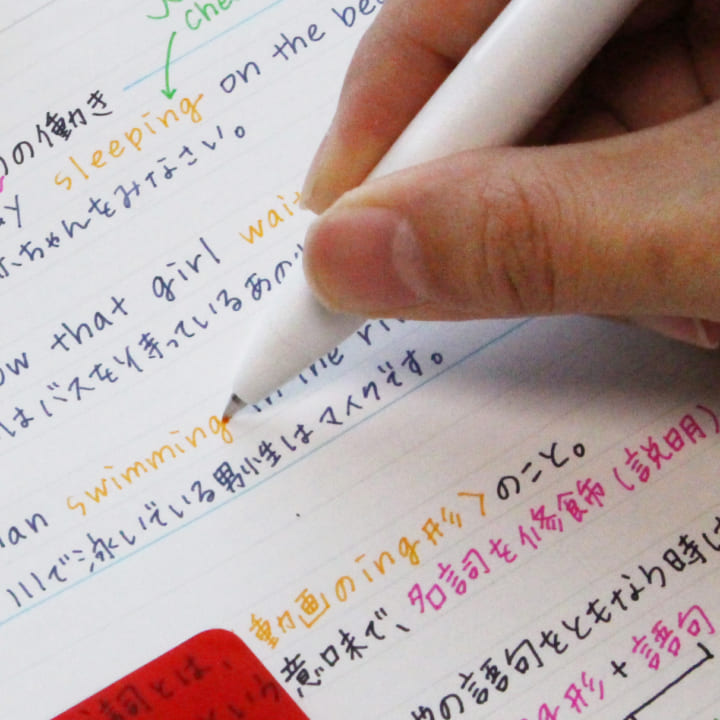 che
の働き
y sleeping on the be
ちゃんをみなさい。
ow that girl wait
はバスを待っているあの
an swimming in the ri
川で泳いでいる男性はマイクです。
動画のing形〉のこと。
意味で、名詞を修飾(説明)
の語句をともなう時は
形+語句
詞とは、